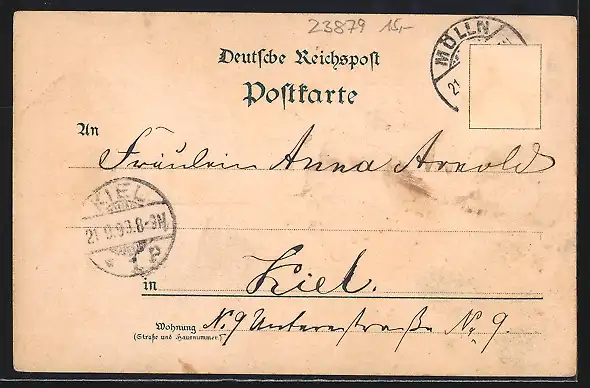 23879 15,-
Deutsche Reichspost
Postkarte
MÖLLN
21
An
Fräulein Anna Arnold
KIEL
21.9.99.8-9N
* 1 e
in Kiel.
Wohnung No. 9 Unterestraße No. 9.
(Straße und Hausnummer.)